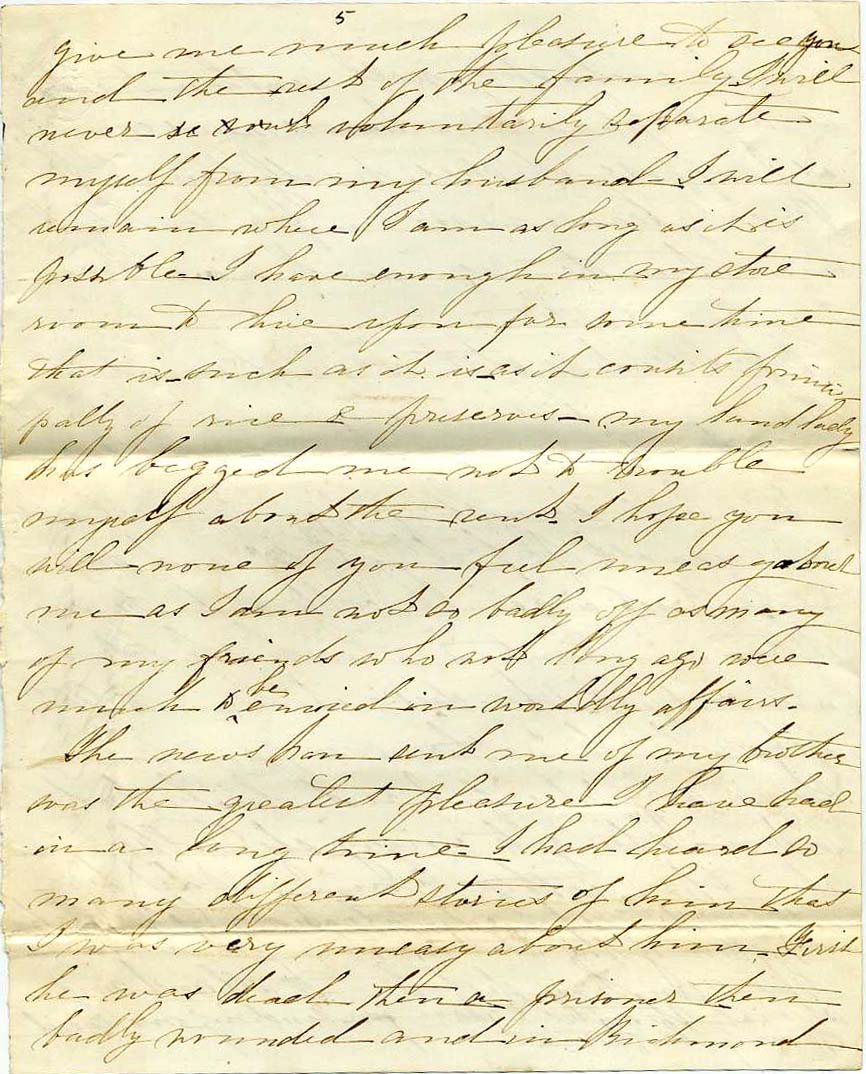 5
give me much pleasure to see you
and the rest of the family I will
never voluntarily separate
myself from my husband I will
remain where I am as long as it is
possible I have enough in my store
room to live upon for some time
that is such as it is as it consists princi
pally of rice & preserves – my landlady
has begged me not to trouble
myself about the rent. I hope you
will none of you feel uneasy about
me as I am not so badly off as many
of my friends who not long ago were
much to be envied in worldly affairs.
The news you sent me of my brother
was the greatest pleasure I have had
in a long time. I had heard so
many different stories of him that
I was very uneasy about him. First
he was dead then a prisoner then
badly wounded and in Richmond